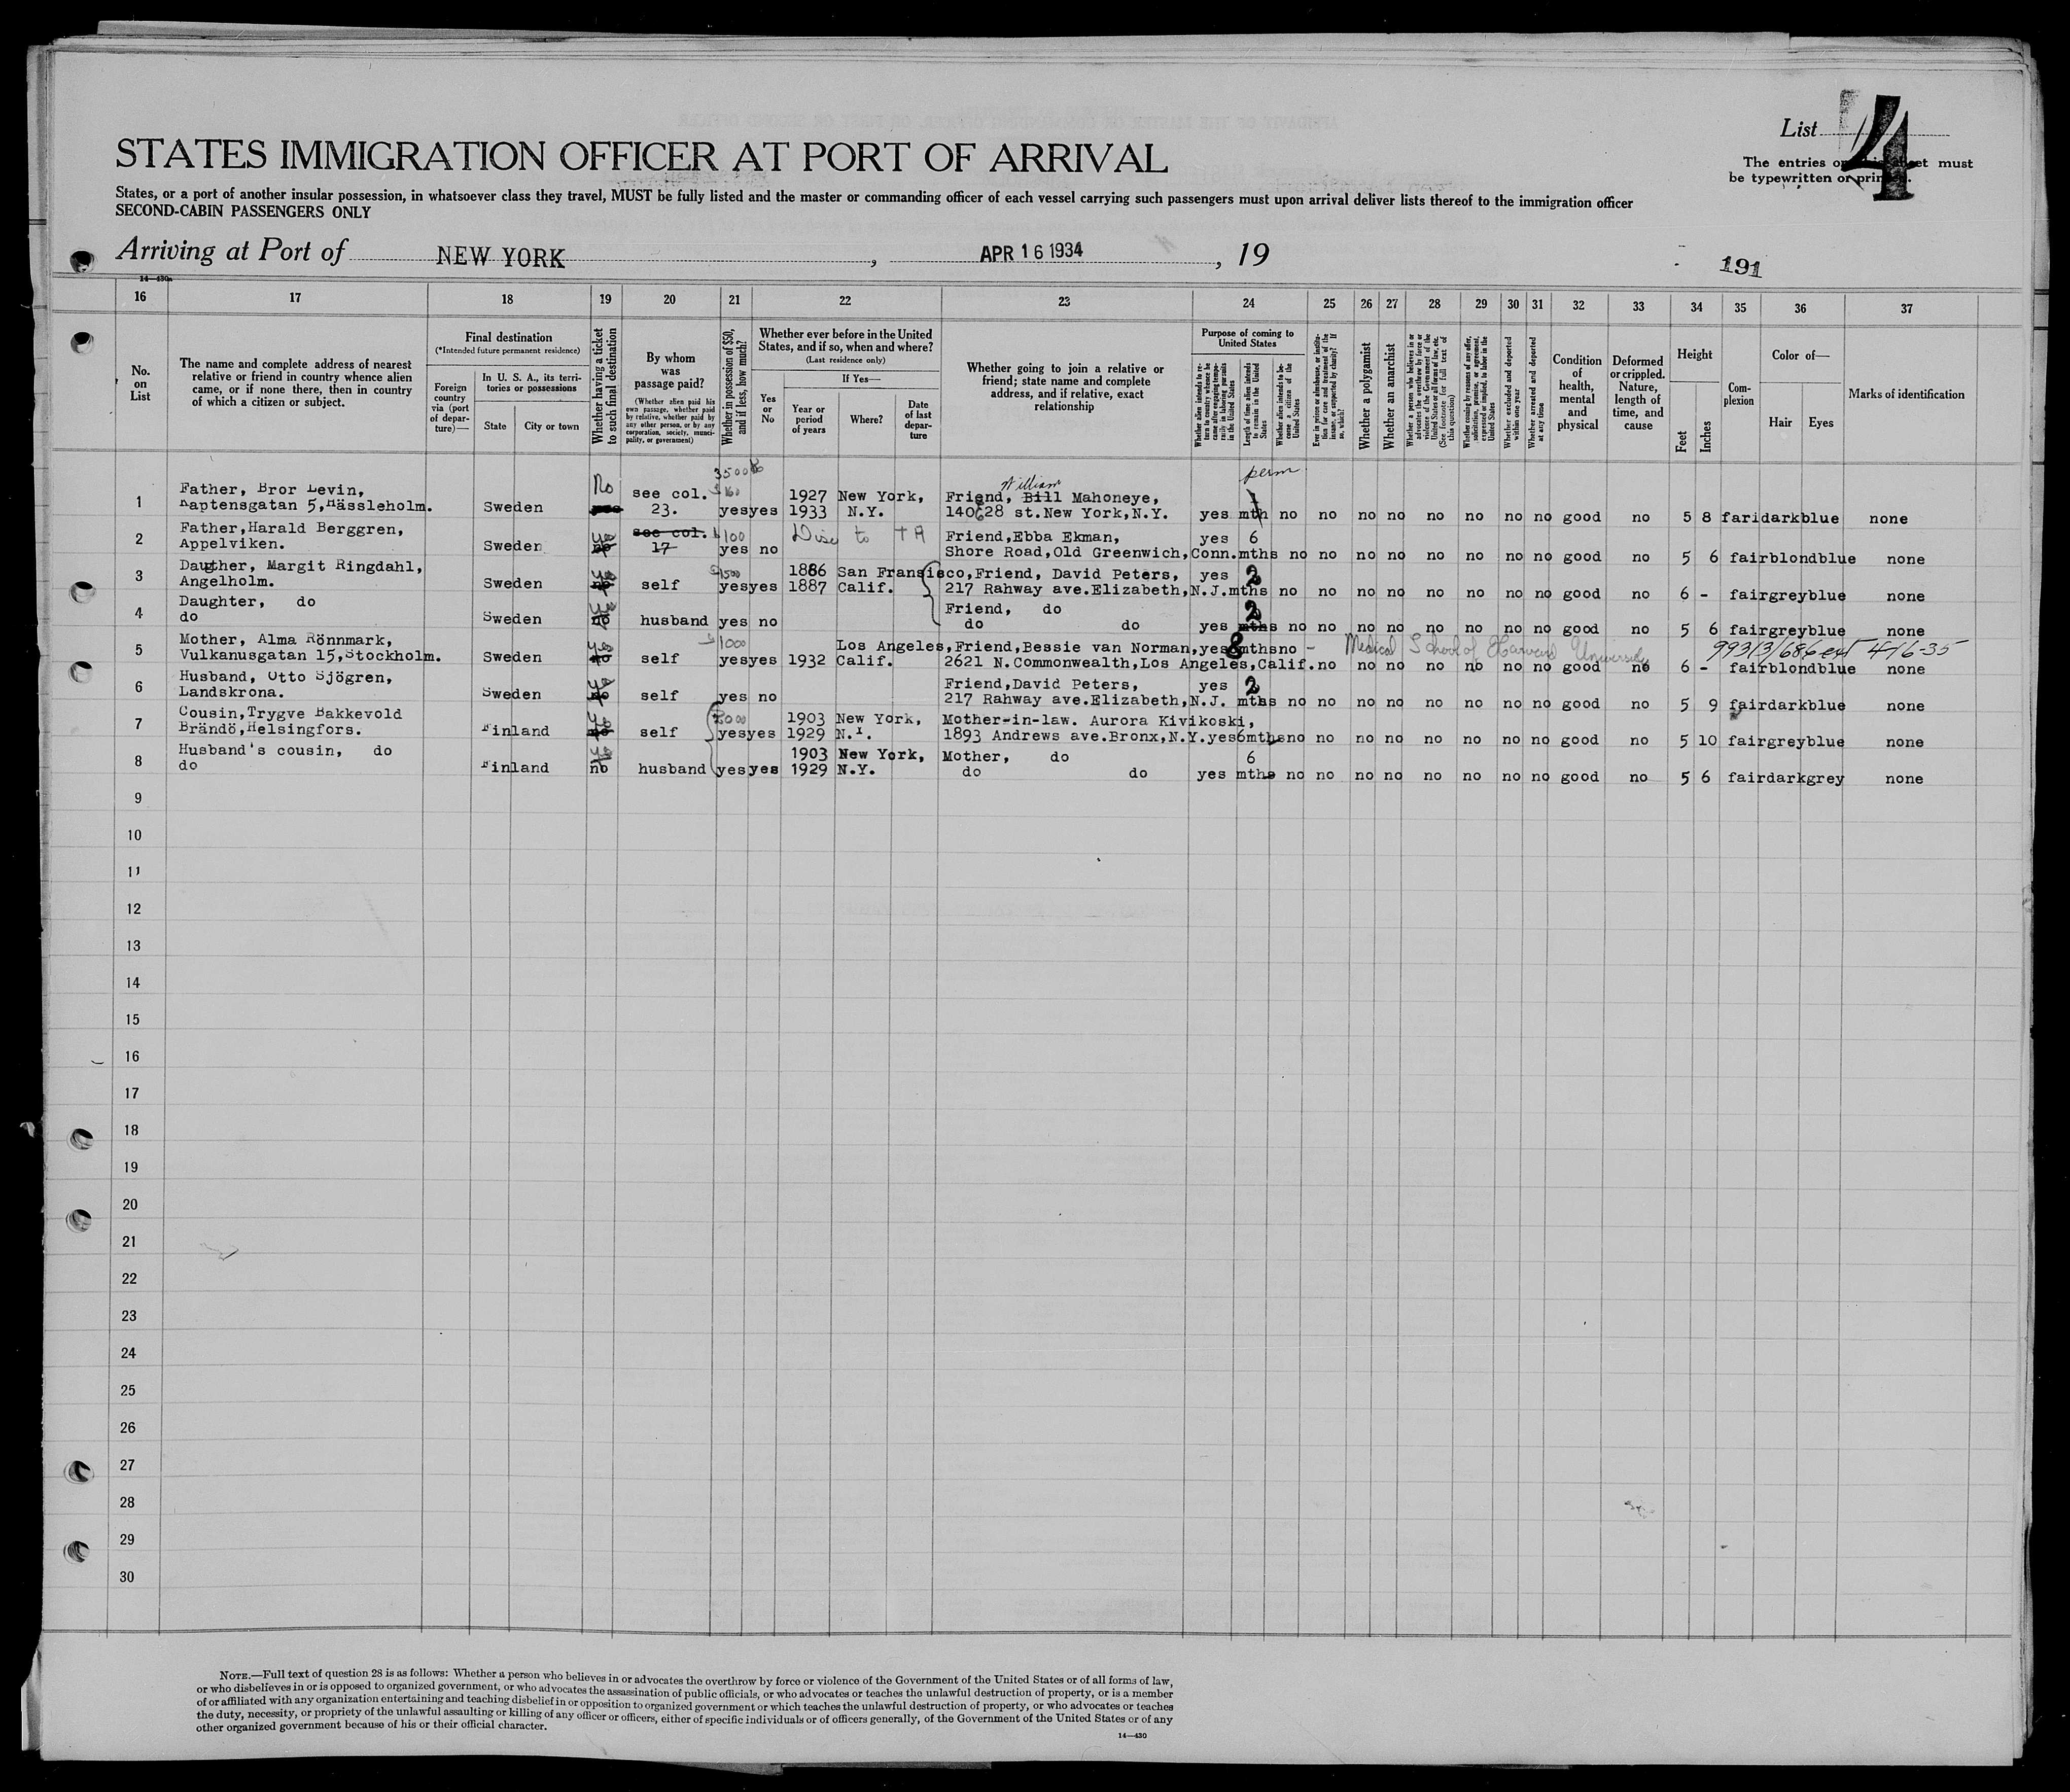 List 4
The entries on this sheet must
be typewritten or printed.
STATES IMMIGRATION OFFICER AT PORT OF ARRIVAL
States, or a port of another insular possession, in whatsoever class they travel, MUST be fully listed and the master or commanding officer of each vessel carrying such passengers must upon arrival deliver lists thereof to the immigration officer
SECOND-CABIN PASSENGERS ONLY
Arriving at Port of NEW YORK, APR 16 1934, 19
191
14—430a
16 17 18 19 20 21 22 23 24 25 26 27 28 29 30 31 32 33 34 35 36 37
No. on List
The name and complete address of nearest relative or friend in country whence alien came, or if none there, then in country of which a citizen or subject.
Final destination
(*Intended future permanent residence)
Foreign country via (port of departure)—
In U. S. A., its territories or possessions
State
City or town
Whether having a ticket to such final destination
By whom was passage paid?
(Whether alien paid his own passage, whether paid by relative, whether paid by any other person, or by any corporation, society, municipality, or government)
Whether in possession of $50, and if less, how much?
Whether ever before in the United States, and if so, when and where?
(Last residence only)
Yes or No
If Yes—
Year or period of years
Where?
Date of last departure
Whether going to join a relative or friend; state name and complete address, and if relative, exact relationship
Purpose of coming to United States
Whether alien intends to return to country whence he came after engaging temporarily in laboring pursuits in the United States
Length of time alien intends to remain in the United States
Whether alien intends to become a citizen of the United States
Ever in prison or almshouse, or institution for care and treatment of the insane, or supported by charity? If so, which?
Whether a polygamist
Whether an anarchist
Whether a person who believes in or advocates the overthrow by force or violence of the Government of the United States or all forms of law, etc. (See footnote for full text of this question)
Whether coming by reasons of any offer, solicitation, promise, or agreement, expressed or implied, to labor in the United States
Whether excluded and deported within one year
Whether arrested and deported at any time
Condition of health, mental and physical
Deformed or crippled. Nature, length of time, and cause
Height
Feet
Inches
Complexion
Color of—
Hair Eyes
Marks of identification
No 3500 William perm
1 Father, Bror Levin, see col. 1927 New York, Friend, Bill Mahoneye,
Kaptensgatan 5,Hässleholm. Sweden 23. yes yes 1933 N.Y. 140 628 st.New York,N.Y. yes mth no no no no no no no no good no 5 8 fari dark blue none
2 Father,Harald Berggren, see col. 100 Disc to TA Friend,Ebba Ekman, yes 6
Appelviken. Sweden 17 yes no Shore Road,Old Greenwich,Conn. mths no no no no no no no no good no 5 6 fair blond blue none
3 Dauther, Margit Ringdahl, 1500 1886 San Fransisco, Friend, David Peters, yes 2
Angelholm. Sweden self yes yes 1887 Calif. 217 Rahway ave.Elizabeth,N.J. mths no no no no no no no no good no 6 - fair grey blue none
4 Daughter, do Friend, do 2
do Sweden no husband yes no do do yes mths no no no no no no no no good no 5 6 fair grey blue none
5 Mother, Alma Rönnmark, 1000 Los Angeles, Friend,Bessie van Norman, yes 8 mths no - Medical School of Harvard University 993/3/686 ext 4-16-35
Vulkanusgatan 15,Stockholm. Sweden self yes yes 1932 Calif. 2621 N.Commonwealth,Los Angeles,Calif. no no no no no no no good no 6 - fair blond blue none
6 Husband, Otto Sjögren, Friend,David Peters, yes 2
Landskrona. Sweden no self yes no 217 Rahway ave.Elizabeth,N.J. mths no no no no no no no no good no 5 9 fair dark blue none
7 Cousin,Trygve Bakkevold 1903 New York, Mother-in-law. Aurora Kivikoski,
Brändö,Helsingfors. Finland self yes yes 1929 N.Y. 1893 Andrews ave.Bronx,N.Y. yes 6mths no no no no no no no no good no 5 10 fair grey blue none
8 Husband's cousin, do 1903 New York, Mother, do 6
do Finland no husband yes yes 1929 N.Y. do do yes mths no no no no no no no no good no 5 6 fair dark grey none
9
10
11
12
13
14
15
16
17
18
19
20
21
22
23
24
25
26
27
28
29
30
NOTE.—Full text of question 28 is as follows: Whether a person who believes in or advocates the overthrow by force or violence of the Government of the United States or of all forms of law,
or who disbelieves in or is opposed to organized government, or who advocates the assassination of public officials, or who advocates or teaches the unlawful destruction of property, or is a member
of or affiliated with any organization entertaining and teaching disbelief in or opposition to organized government or which teaches the unlawful destruction of property, or who advocates or teaches
the duty, necessity, or propriety of the unlawful assaulting or killing of any officer or officers, either of specific individuals or of officers generally, of the Government of the United States or of any
other organized government because of his or their official character.
14—430